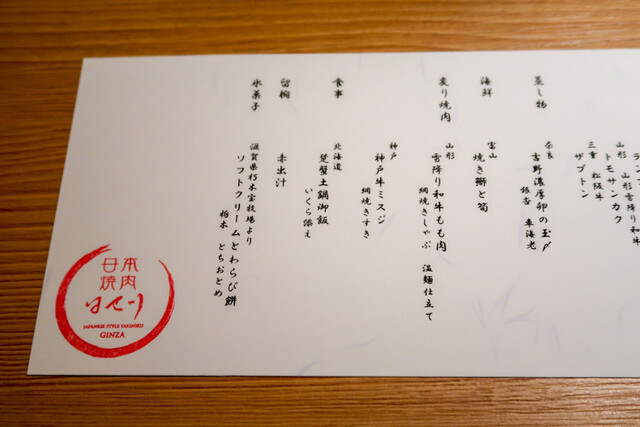 ランプ
山形 山形雪降り和牛
トモサンカク
三重 松阪牛
ザブトン
蒸し物
奈良
吉野濃厚卵の玉〆
銀杏 車海老
海鮮
富山
焼き鰤と筍
炙り焼肉
山形
雪降り和牛もも肉
網焼きしゃぶ 温麺仕立て
神戸
神戸牛ミスジ
網焼きすき
食事
北海道
楚蟹土鍋御飯
いくら添え
留椀
赤出汁
氷菓子
滋賀県朽木宝牧場より
ソフトクリームとわらび餅
栃木 とちおとめ
日本
焼肉
はせ川
JAPANESE STYLE YAKINIKU
GINZA